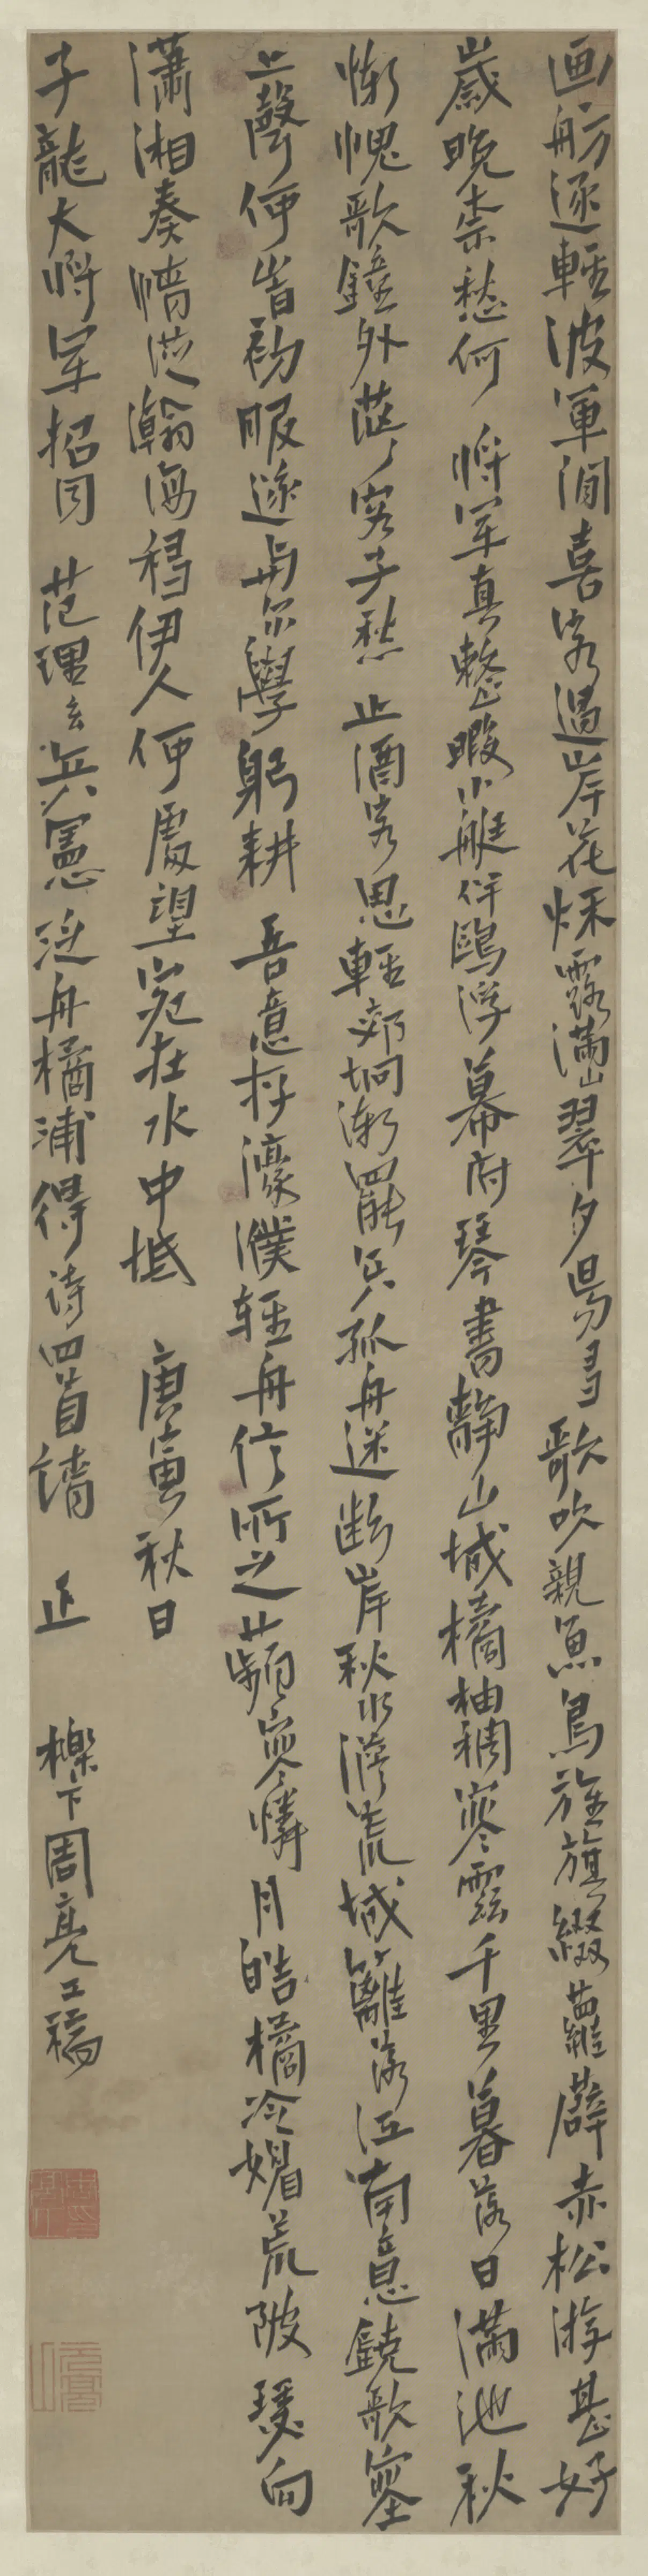 画舫逐輕波軍閒喜客過岸花烁露滿山翠夕易多歌吹親魚鳥旌旗綴蘿薜赤松游甚好
歲晚奈愁何 將軍真整暇小艇伴鷗浮幕府琴書靜山城橘柚稠寒雲千里暮落日滿池秋
慚愧歌鐘外茫茫客子愁 止酒客思輕郊坰漸罷兵孤舟迷斷岸秋水澹荒城籬落江南意鐃歌塞
上聲何嵩初服遂與尔學躬耕 吾意存濠濮輕舟信所之蘋寒憐月皓橘冷媚荒陂瑟向
瀟湘奏情從瀚海移伊人何處望宛在水中坻 庚寅秋日
子龍大將軍招同 范理玄兵憲泛舟橘浦得詩四首請 正 櫟下周亮工稿